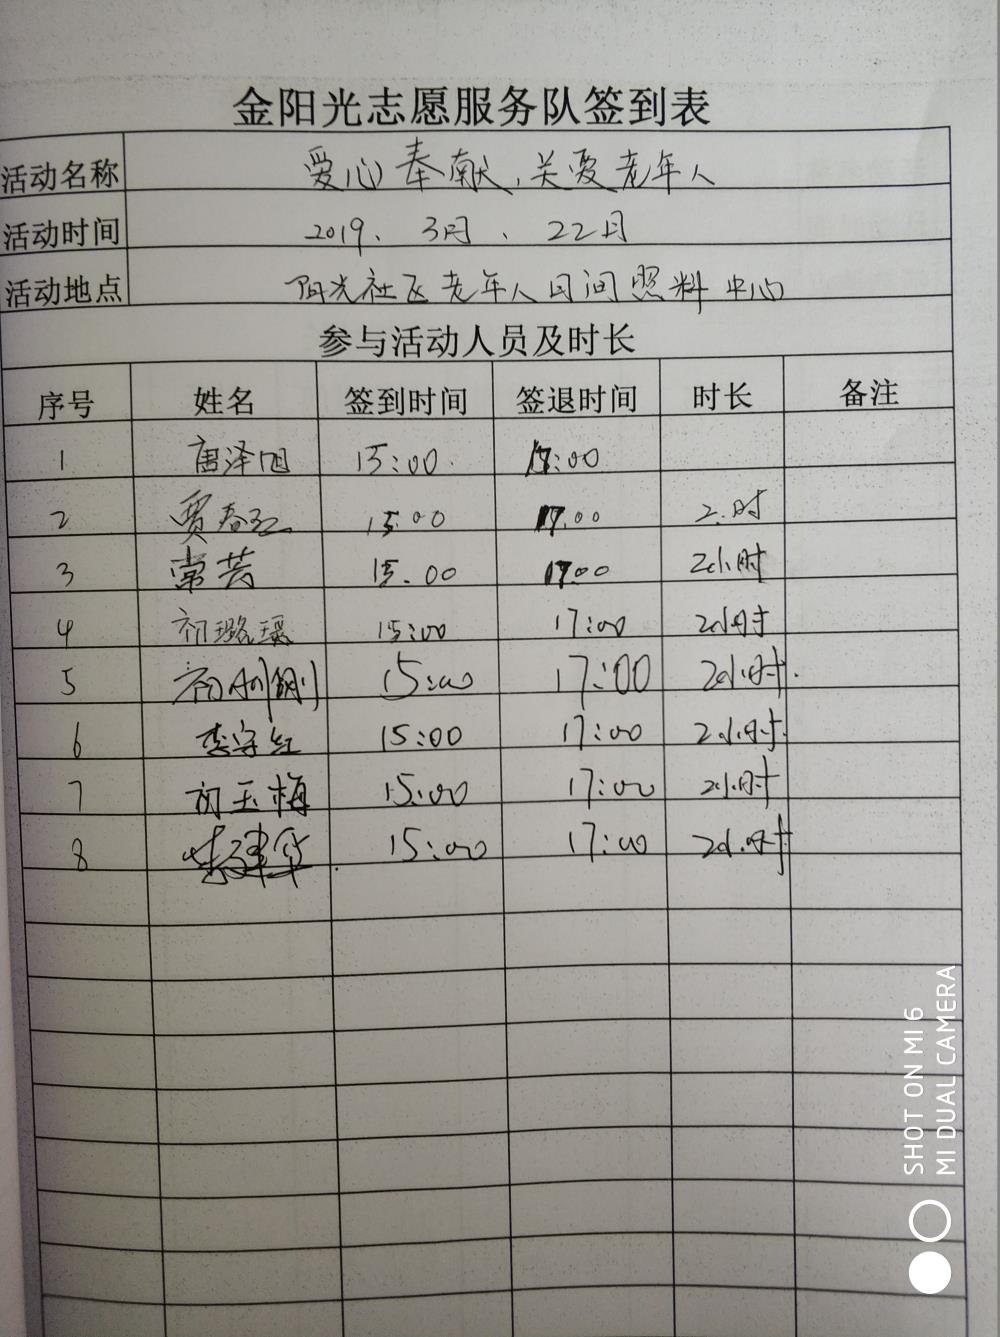 金阳光志愿服务队签到表
活动名称 爱心奉献，关爱老年人
活动时间 2019、3月、22日
活动地点 阳光社区老年人日间照料中心
参与活动人员及时长
序号 姓名 签到时间 签退时间 时长 备注
1 唐泽旭 15:00 17:00
2 贾春红 15:00 17:00 2.时
3 常芸 15.00 17:00 2小时
4 初璐瑶 15:00 17:00 2小时
5 初 15:00 17:00 2小时
6 李守红 15:00 17:00 2小时
7 初玉梅 15:00 17:00 2小时
8 15:00 17:00 2小时
SHOT ON MI 6
MI DUAL CAMERA